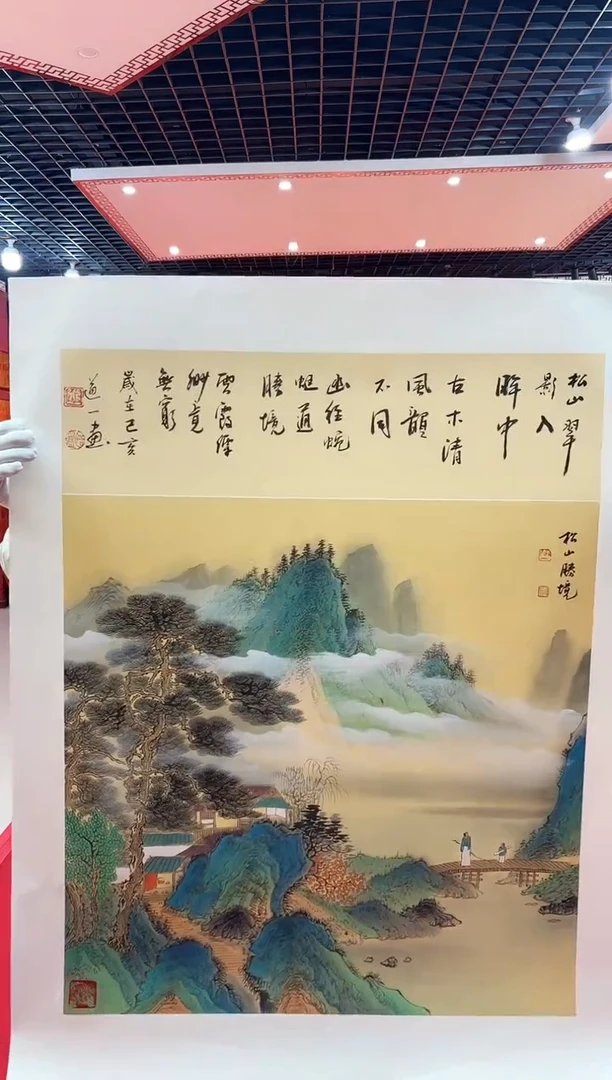 松山翠
影入
眸中
古木清
風韻
不同
幽径蜿
蜒道
勝境
雲霞縹
緲竟
無窮
歲在己亥
道一畫
松山勝境